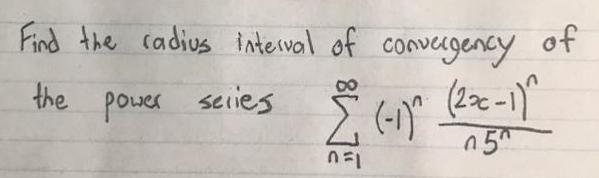 Find the radius interval of convergency of
the power series \sum_{n=1}^{\infty} (-1)^n \frac{(2x-1)^n}{n 5^n}